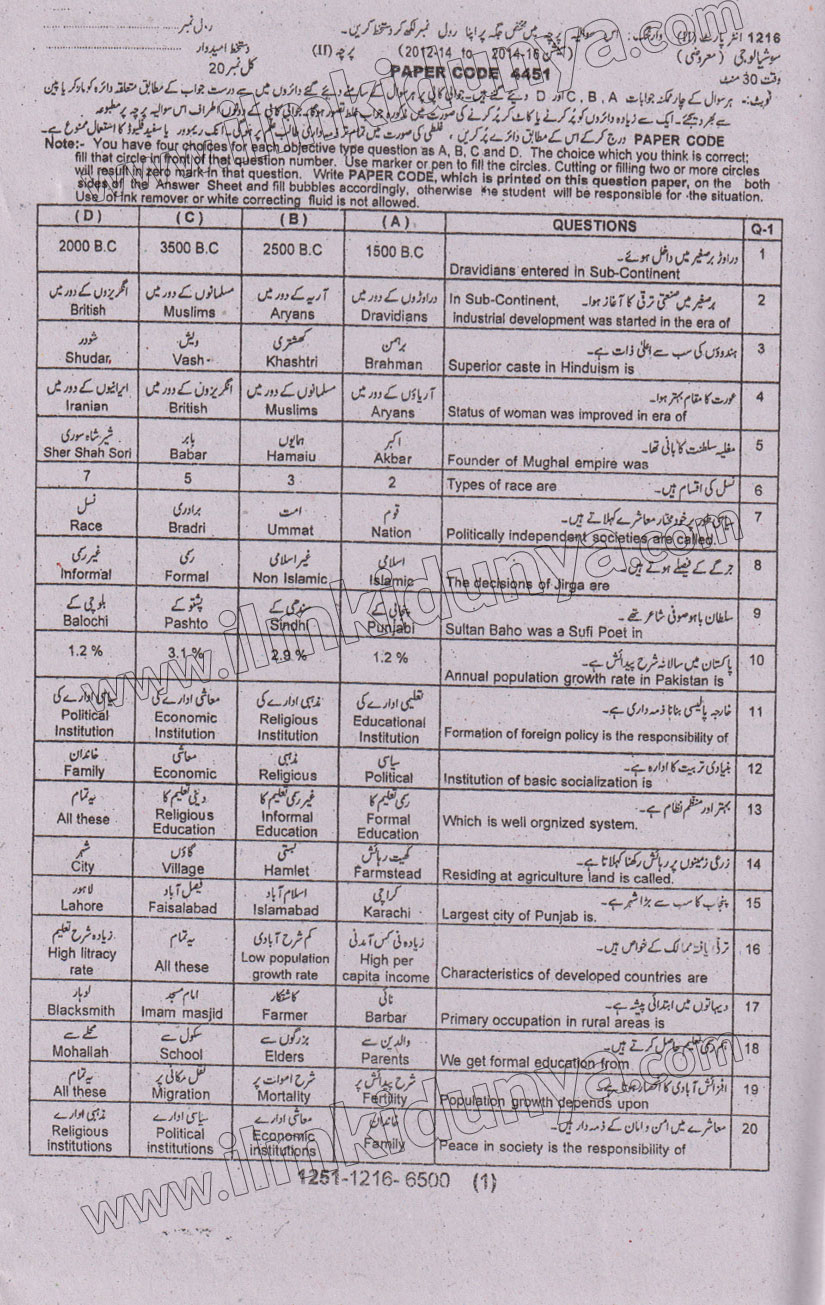 1216 انٹر پارٹ (II) وارننگ:۔ اس سوالیہ پرچہ میں مختص جگہ پر اپنا رول نمبر لکھ کر دستخط کریں۔ رول نمبر
سوشیالوجی (معروضی) (سیشن 2014-16 to 2012-14) پرچہ (II) دستخط امیدوار
وقت 30 منٹ PAPER CODE 4451 کل نمبر 20
نوٹ:۔ ہر سوال کے چار ممکنہ جوابات A, B, C اور D دیئے گئے ہیں۔ جوابی کاپی پر ہر سوال کے سامنے دیئے گئے دائروں میں سے درست جواب کے مطابق متعلقہ دائرہ کو مارکر یا پین
سے بھر دیجئے۔ ایک سے زیادہ دائروں کو پر کرنے یا کاٹ کر پر کرنے کی صورت میں مذکورہ جواب غلط تصور ہوگا۔ جوابی کاپی کے دونوں اطراف اس سوالیہ پرچہ پر مطبوعہ
PAPER CODE درج کر کے اس کے مطابق دائرے پُر کریں، غلطی کی صورت میں تمام تر ذمہ داری طالب علم پر ہوگی۔ انک ریموور یا سفید فلیوڈ کا استعمال ممنوع ہے۔
Note:- You have four choices for each objective type question as A, B, C and D. The choice which you think is correct;
fill that circle in front of that question number. Use marker or pen to fill the circles. Cutting or filling two or more circles
will result in zero mark in that question. Write PAPER CODE, which is printed on this question paper, on the both
sides of the Answer Sheet and fill bubbles accordingly, otherwise the student will be responsible for the situation.
Use of ink remover or white correcting fluid is not allowed.
(D) (C) (B) (A) QUESTIONS Q-1
2000 B.C 3500 B.C 2500 B.C 1500 B.C دراوڑ برصغیر میں داخل ہوئے۔ 1
Dravidians entered in Sub-Continent
انگریزوں کے دور میں مسلمانوں کے دور میں آریہ کے دور میں دراوڑوں کے دور میں In Sub-Continent, برصغیر میں صنعتی ترقی کا آغاز ہوا۔ 2
British Muslims Aryans Dravidians industrial development was started in the era of
شودر ویش کھشتری برہمن ہندوؤں کی سب سے اعلیٰ ذات ہے۔ 3
Shudar, Vash- Khashtri Brahman Superior caste in Hinduism is
ایرانیوں کے دور میں انگریزوں کے دور میں مسلمانوں کے دور میں آریاؤں کے دور میں عورت کا مقام بہتر ہوا۔ 4
Iranian British Muslims Aryans Status of woman was improved in era of
شیر شاہ سوری بابر ہمایوں اکبر مغلیہ سلطنت کا بانی تھا۔ 5
Sher Shah Sori Babar Hamaiu Akbar Founder of Mughal empire was
7 5 3 2 Types of race are نسل کی اقسام ہیں۔ 6
نسل برادری امت قوم سیاسی طور پر خودمختار معاشرے کہلاتے ہیں۔ 7
Race Bradri Ummat Nation Politically independent societies are called.
غیر رسمی رسمی غیر اسلامی اسلامی جرگے کے فیصلے ہوتے ہیں۔ 8
Informal Formal Non Islamic Islamic The decisions of Jirga are
بلوچی کے پشتو کے سندھی کے پنجابی کے سلطان باہو صوفی شاعر تھے۔ 9
Balochi Pashto Sindhi Punjabi Sultan Baho was a Sufi Poet in
1.2 % 3.1 % 2.9 % 1.2 % پاکستان میں سالانہ شرح پیدائش ہے۔ 10
Annual population growth rate in Pakistan is
سیاسی ادارے کی معاشی ادارے کی مذہبی ادارے کی تعلیمی ادارے کی خارجہ پالیسی بنانا ذمہ داری ہے۔ 11
Political Institution Economic Institution Religious Institution Educational Institution Formation of foreign policy is the responsibility of
خاندان معاشی مذہبی سیاسی بنیادی تربیت کا ادارہ ہے۔ 12
Family Economic Religious Political Institution of basic socialization is
یہ تمام دینی تعلیم کا غیر رسمی تعلیم کا رسمی تعلیم کا بہتر اور منظم نظام ہے۔ 13
All these Religious Education Informal Education Formal Education Which is well orgnized system.
شہر گاؤں بستی کھیت رہائش زرعی زمینوں پر رہائش رکھنا کہلاتا ہے۔ 14
City Village Hamlet Farmstead Residing at agriculture land is called.
لاہور فیصل آباد اسلام آباد کراچی پنجاب کا سب سے بڑا شہر ہے۔ 15
Lahore Faisalabad Islamabad Karachi Largest city of Punjab is.
زیادہ شرح تعلیم یہ تمام کم شرح آبادی زیادہ فی کس آمدنی ترقی یافتہ ممالک کے خواص ہیں۔ 16
High litracy rate All these Low population growth rate High per capita income Characteristics of developed countries are
لوہار امام مسجد کاشتکار نائی دیہاتوں میں ابتدائی پیشہ ہے۔ 17
Blacksmith Imam masjid Farmer Barbar Primary occupation in rural areas is
محلے سے سکول سے بزرگوں سے والدین سے ہم رسمی تعلیم حاصل کرتے ہیں۔ 18
Mohallah School Elders Parents We get formal education from
یہ تمام نقل مکانی پر شرح اموات پر شرح پیدائش پر افزائش آبادی کا انحصار ہوتا ہے۔ 19
All these Migration Mortality Fertility Population growth depends upon
مذہبی ادارے سیاسی ادارے معاشی ادارے خاندان معاشرے میں امن و امان کے ذمہ دار ہیں۔ 20
Religious institutions Political institutions Economic institutions Family Peace in society is the responsibility of
1251-1216- 6500 (1)
www.ilmkidunya.com
www.ilmkidunya.com
www.ilmkidunya.com